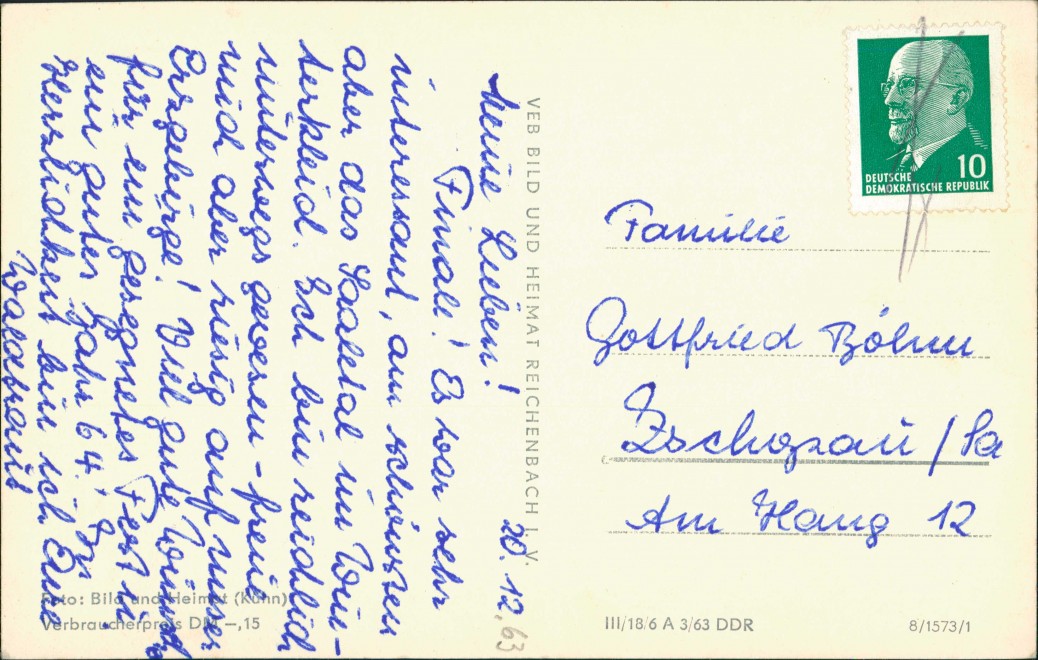 20. 12. 63
Meine Lieben!
Finale! Es war sehr
interessant, am schönsten
aber das Saaletal im Win-
terkleid. Ich bin reichlich
unterwegs gewesen – freue
mich aber riesig auf unser
Erzgebirge! Viel gute Wünsche
für ein gesegnetes Fest u.
ein gutes Jahr 64! In
Herzlichkeit bin ich Eure
Waldtraut
VEB BILD UND HEIMAT REICHENBACH I. V.
Foto: Bild und Heimat (Kühn)
Verbraucherpreis DM –,15
10
DEUTSCHE
DEMOKRATISCHE REPUBLIK
Familie
Gottfried Böhm
Zschopau / Sa
Am Hang 12
III/18/6 A 3/63 DDR
8/1573/1